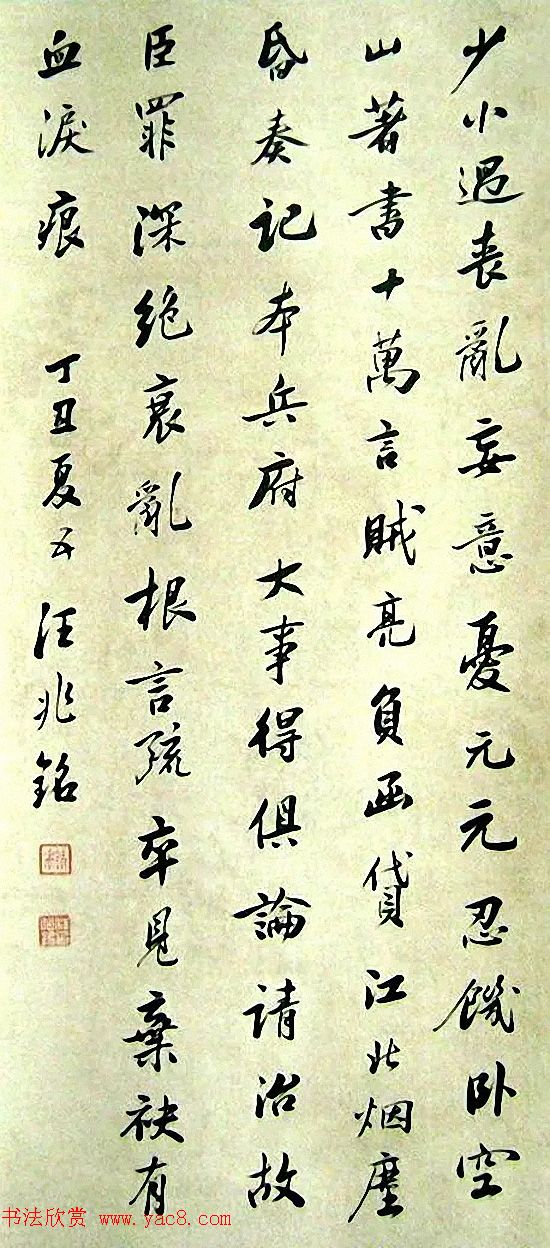 少小遇喪亂妄意憂元元忍饑卧空
山著書十萬言賊亮負函貸江北烟塵
昏奏記本兵府大事得俱論請治故
臣罪深絕衰亂根言疏卒見棄袂有
血淚痕 丁丑夏五 汪兆銘
书法欣赏 www.yac8.com